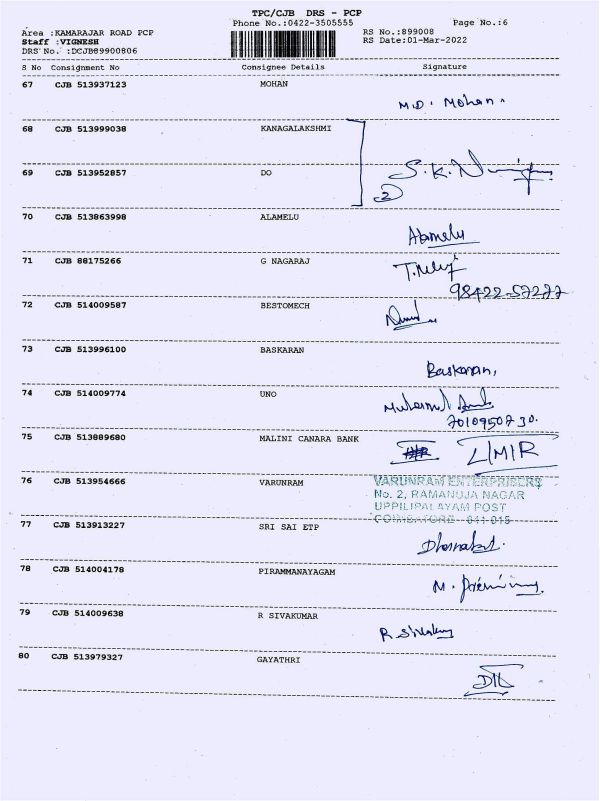 TPC/CJB DRS - PCP
Phone No.:0422-3505555
Page No.:6
Area :KAMARAJAR ROAD PCP
RS No.:899008
Staff :VIGNESH
RS Date:01-Mar-2022
DRS No. :DCJB89900806
S No Consignment No Consignee Details Signature
67 CJB 513937123 MOHAN
M.D. Mohan.
68 CJB 513999038 KANAGALAKSHMI
69 CJB 513952857 DO
S.K.
2
70 CJB 513863998 ALAMELU
Alamelu
71 CJB 88175266 G NAGARAJ
98422-57277
72 CJB 514009587 BESTOMECH
73 CJB 513996100 BASKARAN
Baskaran,
74 CJB 514009774 UNO
7010950730.
75 CJB 513889680 MALINI CANARA BANK
76 CJB 513954666 VARUNRAM
VARUNRAM ENTERPRISERS
No. 2, RAMANUJA NAGAR
UPPILIPALAYAM POST
COIMBATORE - 641 015
77 CJB 513913227 SRI SAI ETP
78 CJB 514004178 PIRAMMANAYAGAM
79 CJB 514009638 R SIVAKUMAR
R Sivakumar
80 CJB 513979327 GAYATHRI